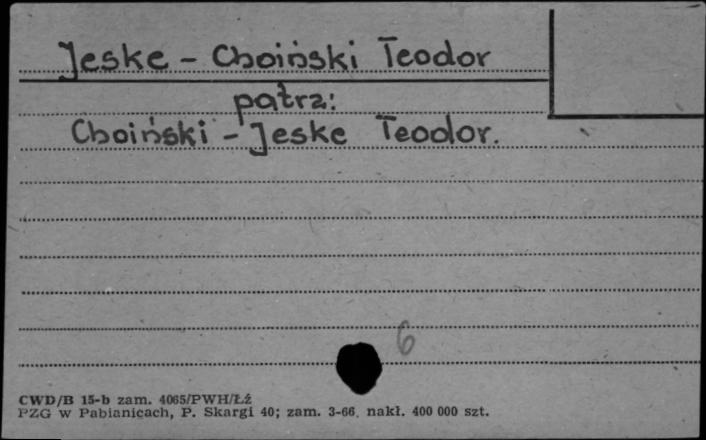 Jeske - Choiński Teodor
patrz:
Choiński - Jeske Teodor.
6
CWD/B 15-b zam. 4065/PWH/Łź
PZG w Pabianicach, P. Skargi 40; zam. 3-66. nakł. 400 000 szt.